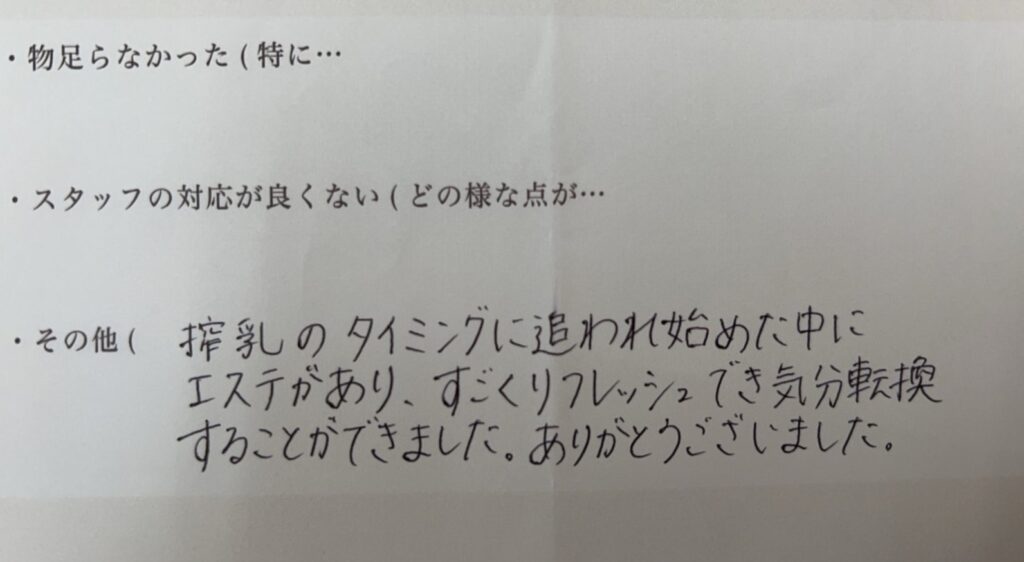 ・物足らなかった ( 特に…
・スタッフの対応が良くない ( どの様な点が…
・その他 ( 搾乳のタイミングに追われ始めた中に
エステがあり、すごくリフレッシュでき気分転換
することができました。ありがとうございました。